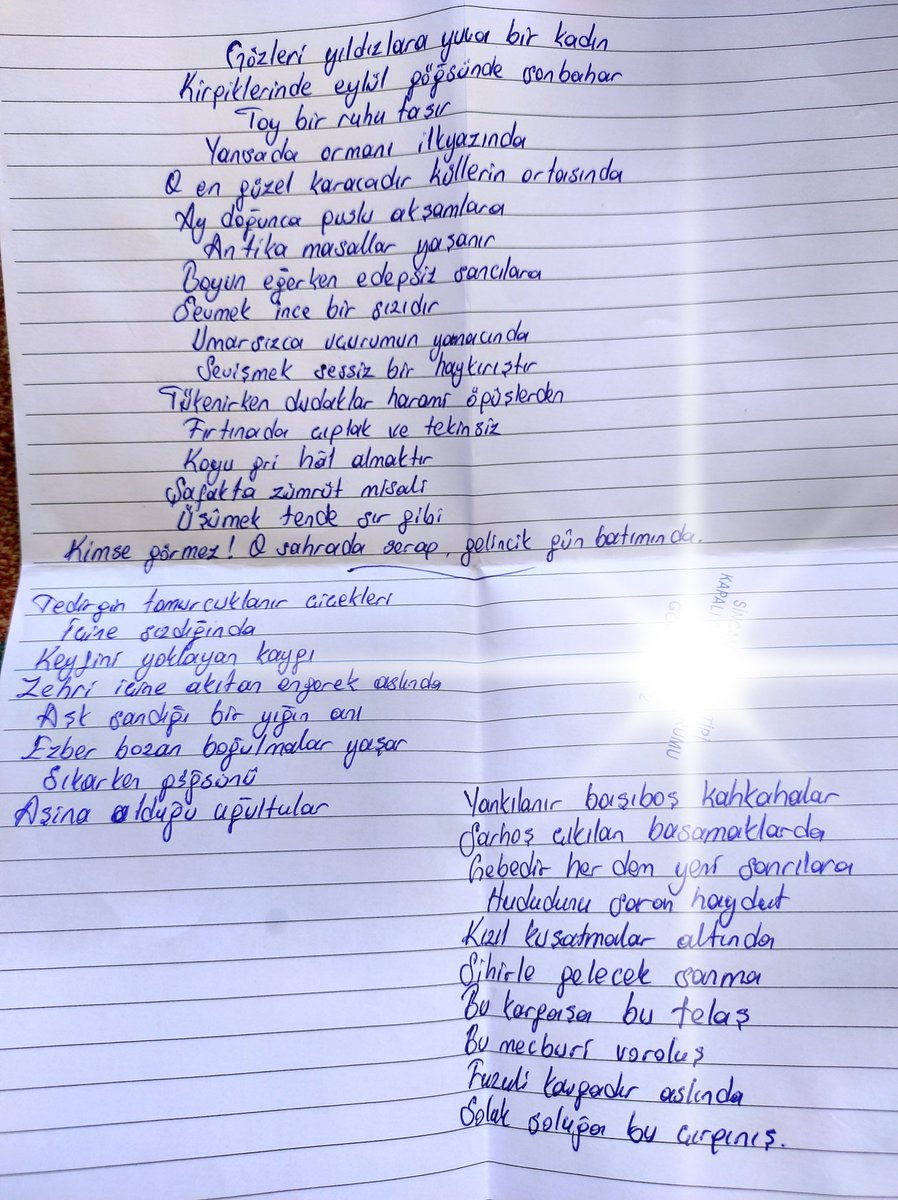 Gözleri yıldızlara yuva bir kadın
Kirpiklerinde eylül göğsünde sonbahar
Toy bir ruhu taşır
Yansada ormanı ilkyazında
O en güzel karacadır küllerin ortasında
Ay doğunca puslu akşamlara
Antika masallar yaşanır
Boyun eğerken edepsiz sancılara
Sevmek ince bir sızıdır
Umarsızca uçurumun yamacında
Sevişmek sessiz bir haykırıştır
Tükenirken dudaklar harami öpüşlerden
Fırtınada çıplak ve tekinsiz
Koyu gri hâl almaktır
Şafakta zümrüt misali
Üşümek tende sır gibi
Kimse görmez! O sahrada serap, gelincik gün batımında.
Tedirgin tomurcuklanır çiçekleri
İçine sızdığında
Keyfini yoklayan kaygı
Zehri içine akıtan engerek aslında
Aşk sandığı bir yığın anı
Ezber bozan boğulmalar yaşar
Sıkarken göğsünü
Aşina olduğu uğultular
Yankılanır başıboş kahkahalar
Sarhoş çıkılan basamaklarda
Gebedir her dem yeni sancılara
Hududunu saran haydut
Kızıl kuşatmalar altında
Sihirle gelecek sanma
Bu kargaşa bu telaş
Bu mecburi varoluş
Fuzuli kavgadır aslında
Solak soluğa bu çırpınış.